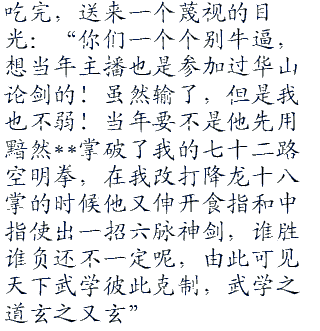 吃完，送来一个蔑视的目
光：“你们一个个别牛逼，
想当年主播也是参加过华山
论剑的！虽然输了，但是我
也不弱！当年要不是他先用
黯然**掌破了我的七十二路
空明拳，在我改打降龙十八
掌的时候他又伸开食指和中
指使出一招六脉神剑，谁胜
谁负还不一定呢，由此可见
天下武学彼此克制，武学之
道玄之又玄”